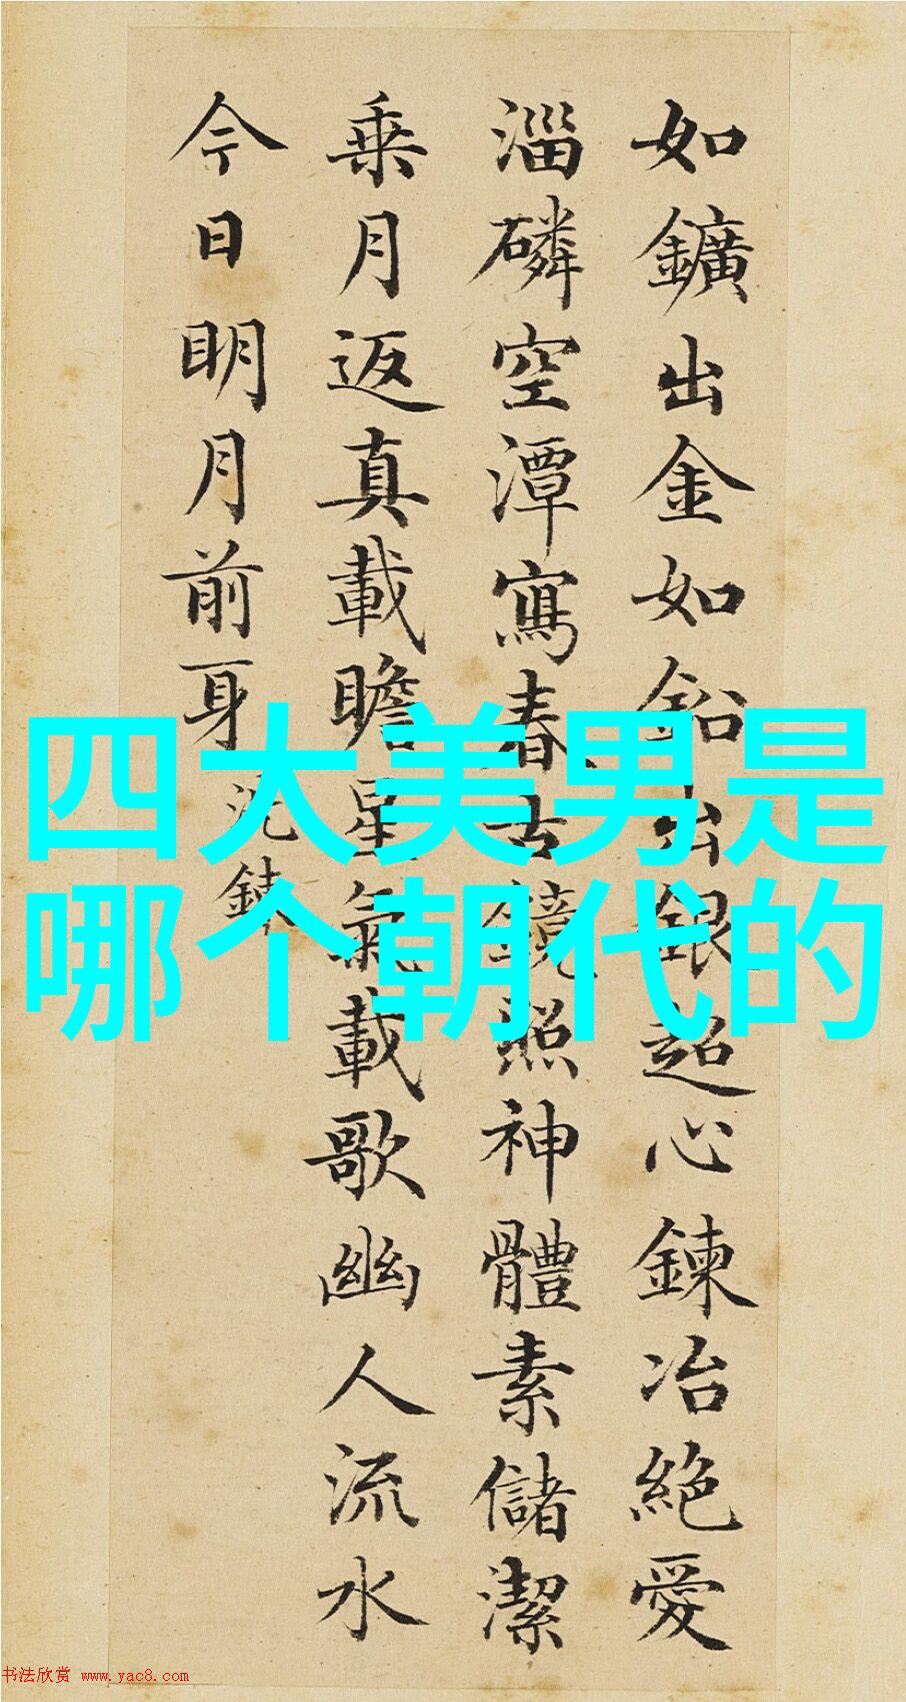 如鑛出金如鉛出銀超心鍊冶絶愛
淄磷空潭寫春古鏡照神體素儲潔
乘月返真載瞻星氣載歌幽人流水
今日明月前身
沈鍊
四大美男是
哪个朝代的
书法欣赏 www.yac8.com